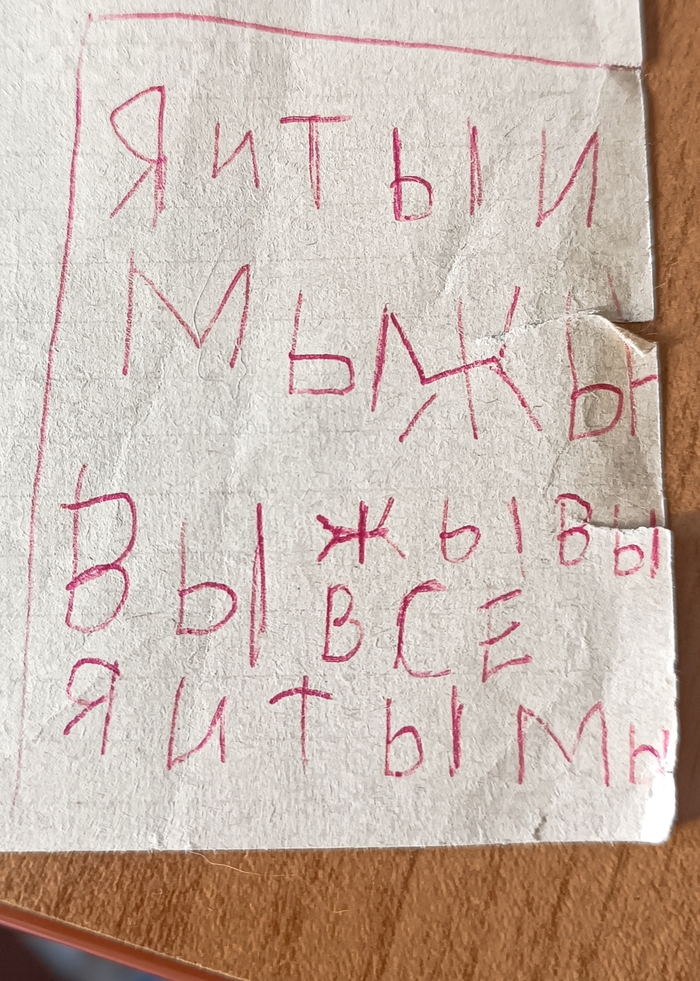 Я И ТЫ И
МЫ
ВЫ ЖЫВЫ
ВСЕ
Я И ТЫ МЫ